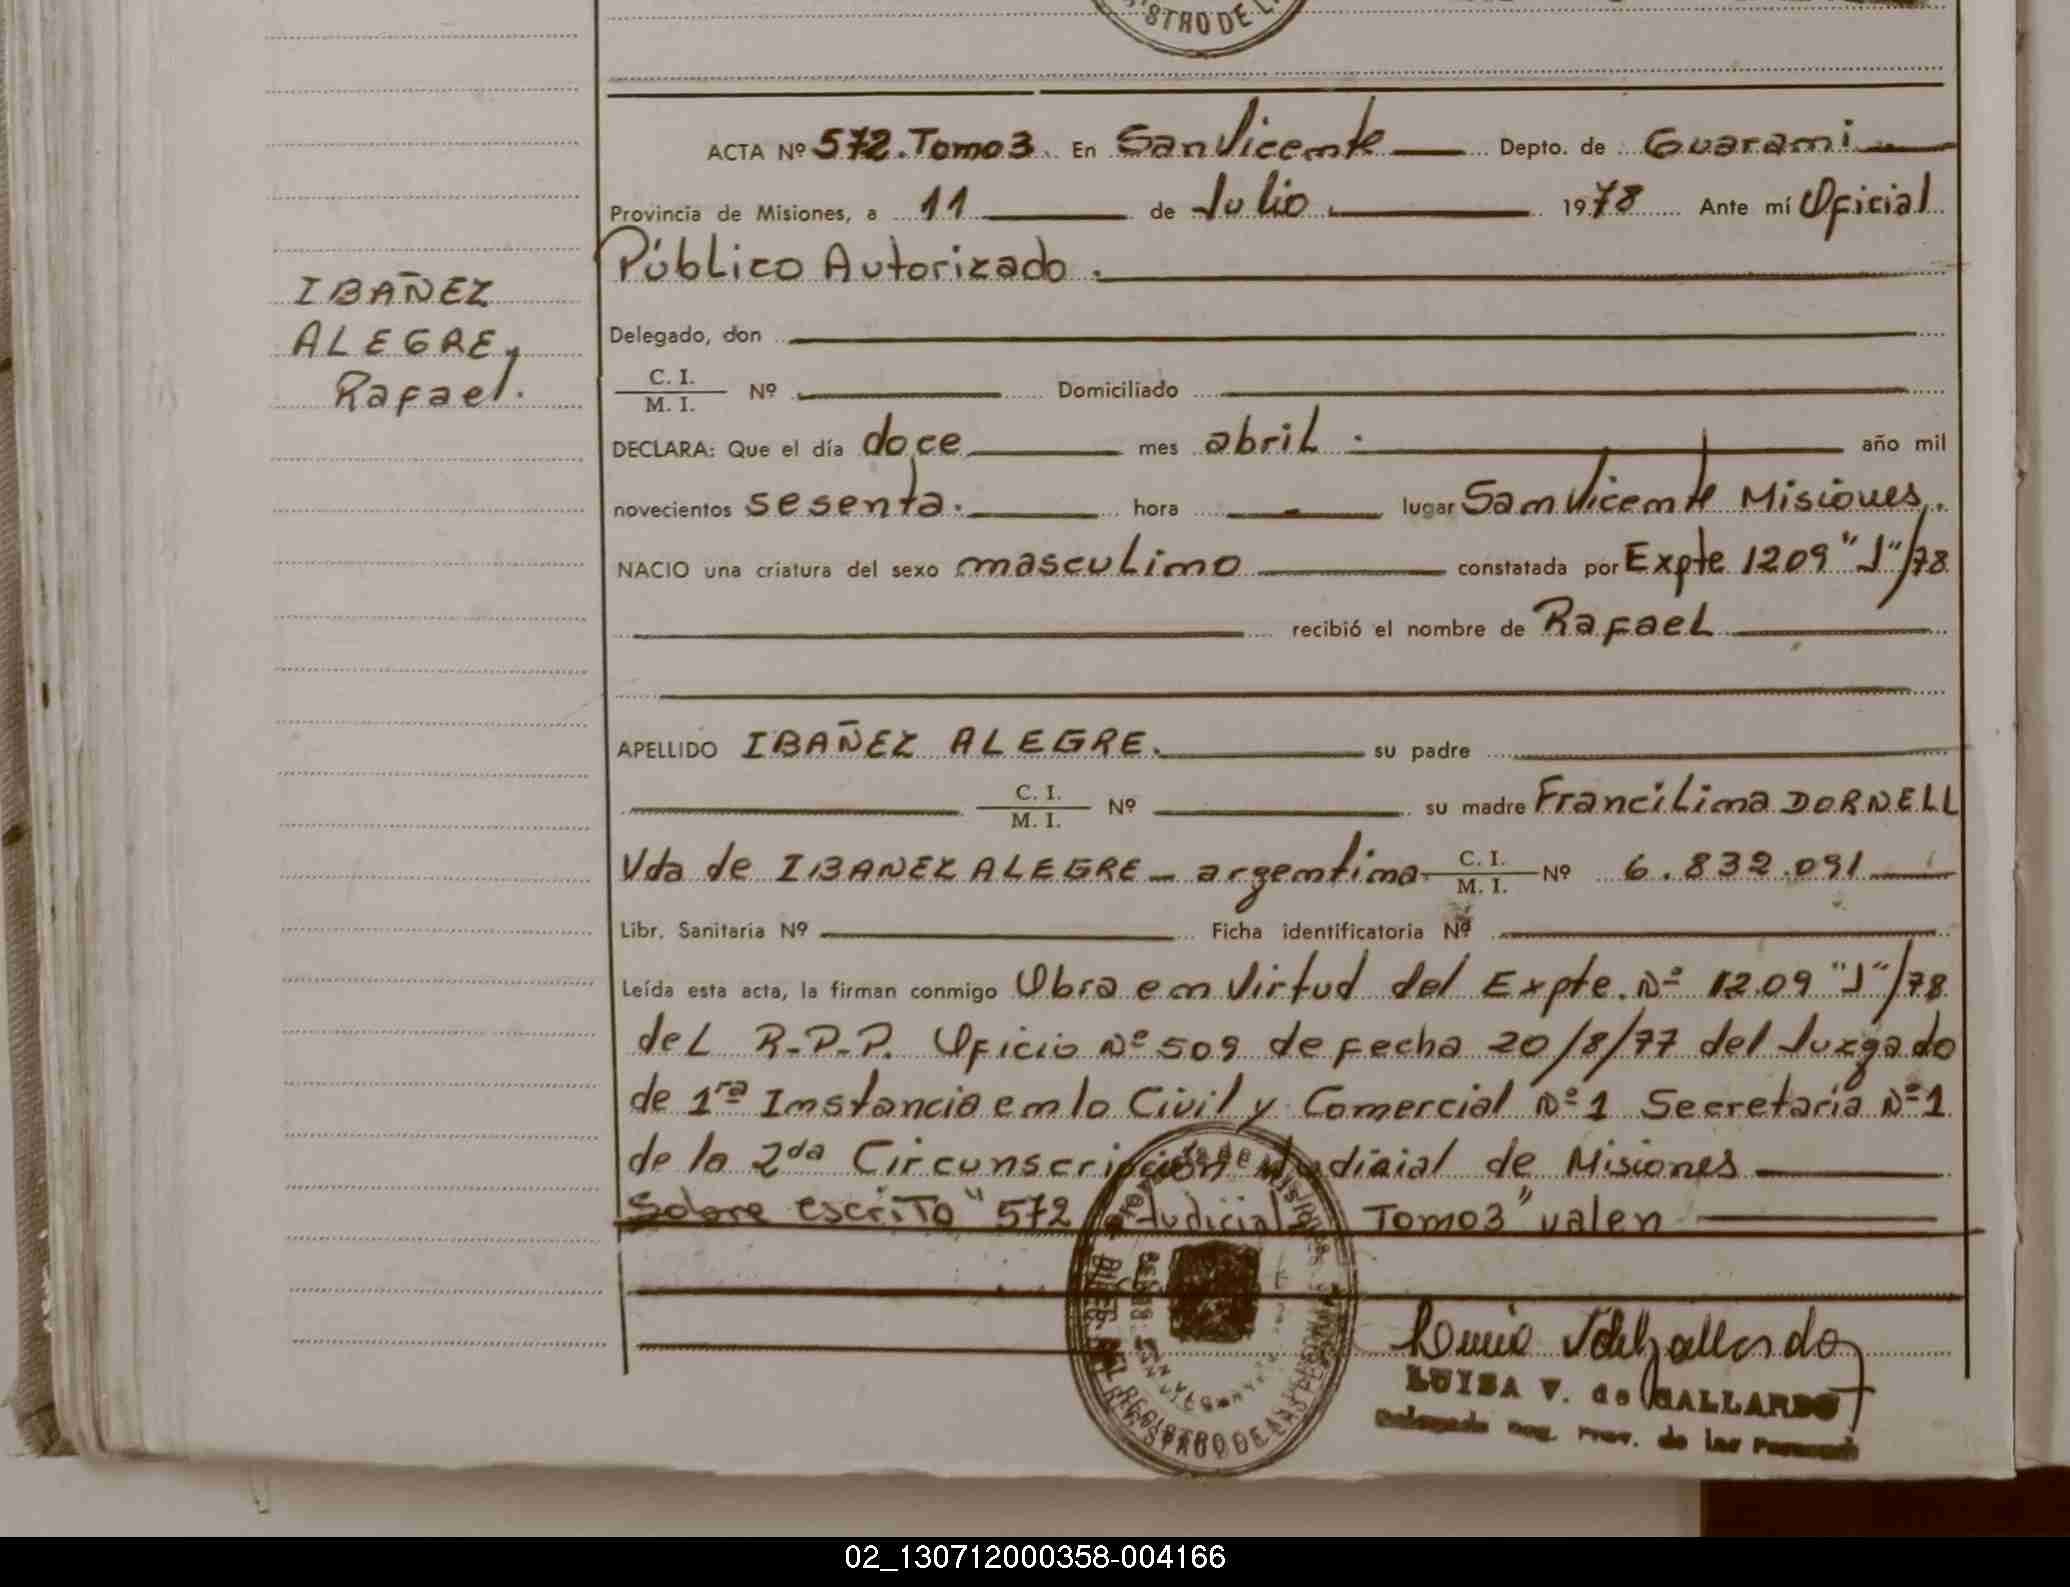 STRO DE L
ACTA Nº 572. Tomo 3. En San Vicente Depto. de Guarani
Provincia de Misiones, a 11 de Julio 1978 Ante mí Oficial
Público Autorizado.
IBAÑEZ
ALEGRE,
Rafael.
Delegado, don
C. I.
M. I. Nº Domiciliado
DECLARA: Que el día doce mes abril. año mil
novecientos sesenta. hora lugar San Vicente Misiones.
NACIO una criatura del sexo masculino constatada por Expte 1209 "J"/78
recibió el nombre de Rafael
APELLIDO IBAÑEZ ALEGRE. su padre
C. I.
M. I. Nº su madre Francilina DORNELL
Vda de IBANEZ ALEGRE - argentina C. I.
M. I. Nº 6.832.091
Libr. Sanitaria Nº Ficha identificatoria Nº
Leída esta acta, la firman conmigo Obra en Virtud del Expte. Nº 1209 "J"/78
del R.P.P. Oficio Nº 509 de fecha 20/8/77 del Juzgado
de 1ra Instancia en lo Civil y Comercial Nº 1 Secretaría Nº 1
de la 2da Circunscripción Judicial de Misiones
Sobre escrito "572 Judicial Tomo 3" valen
LUISA V. de GALLARDO
Delegada Reg. Prov. de las Personas
02_130712000358-004166